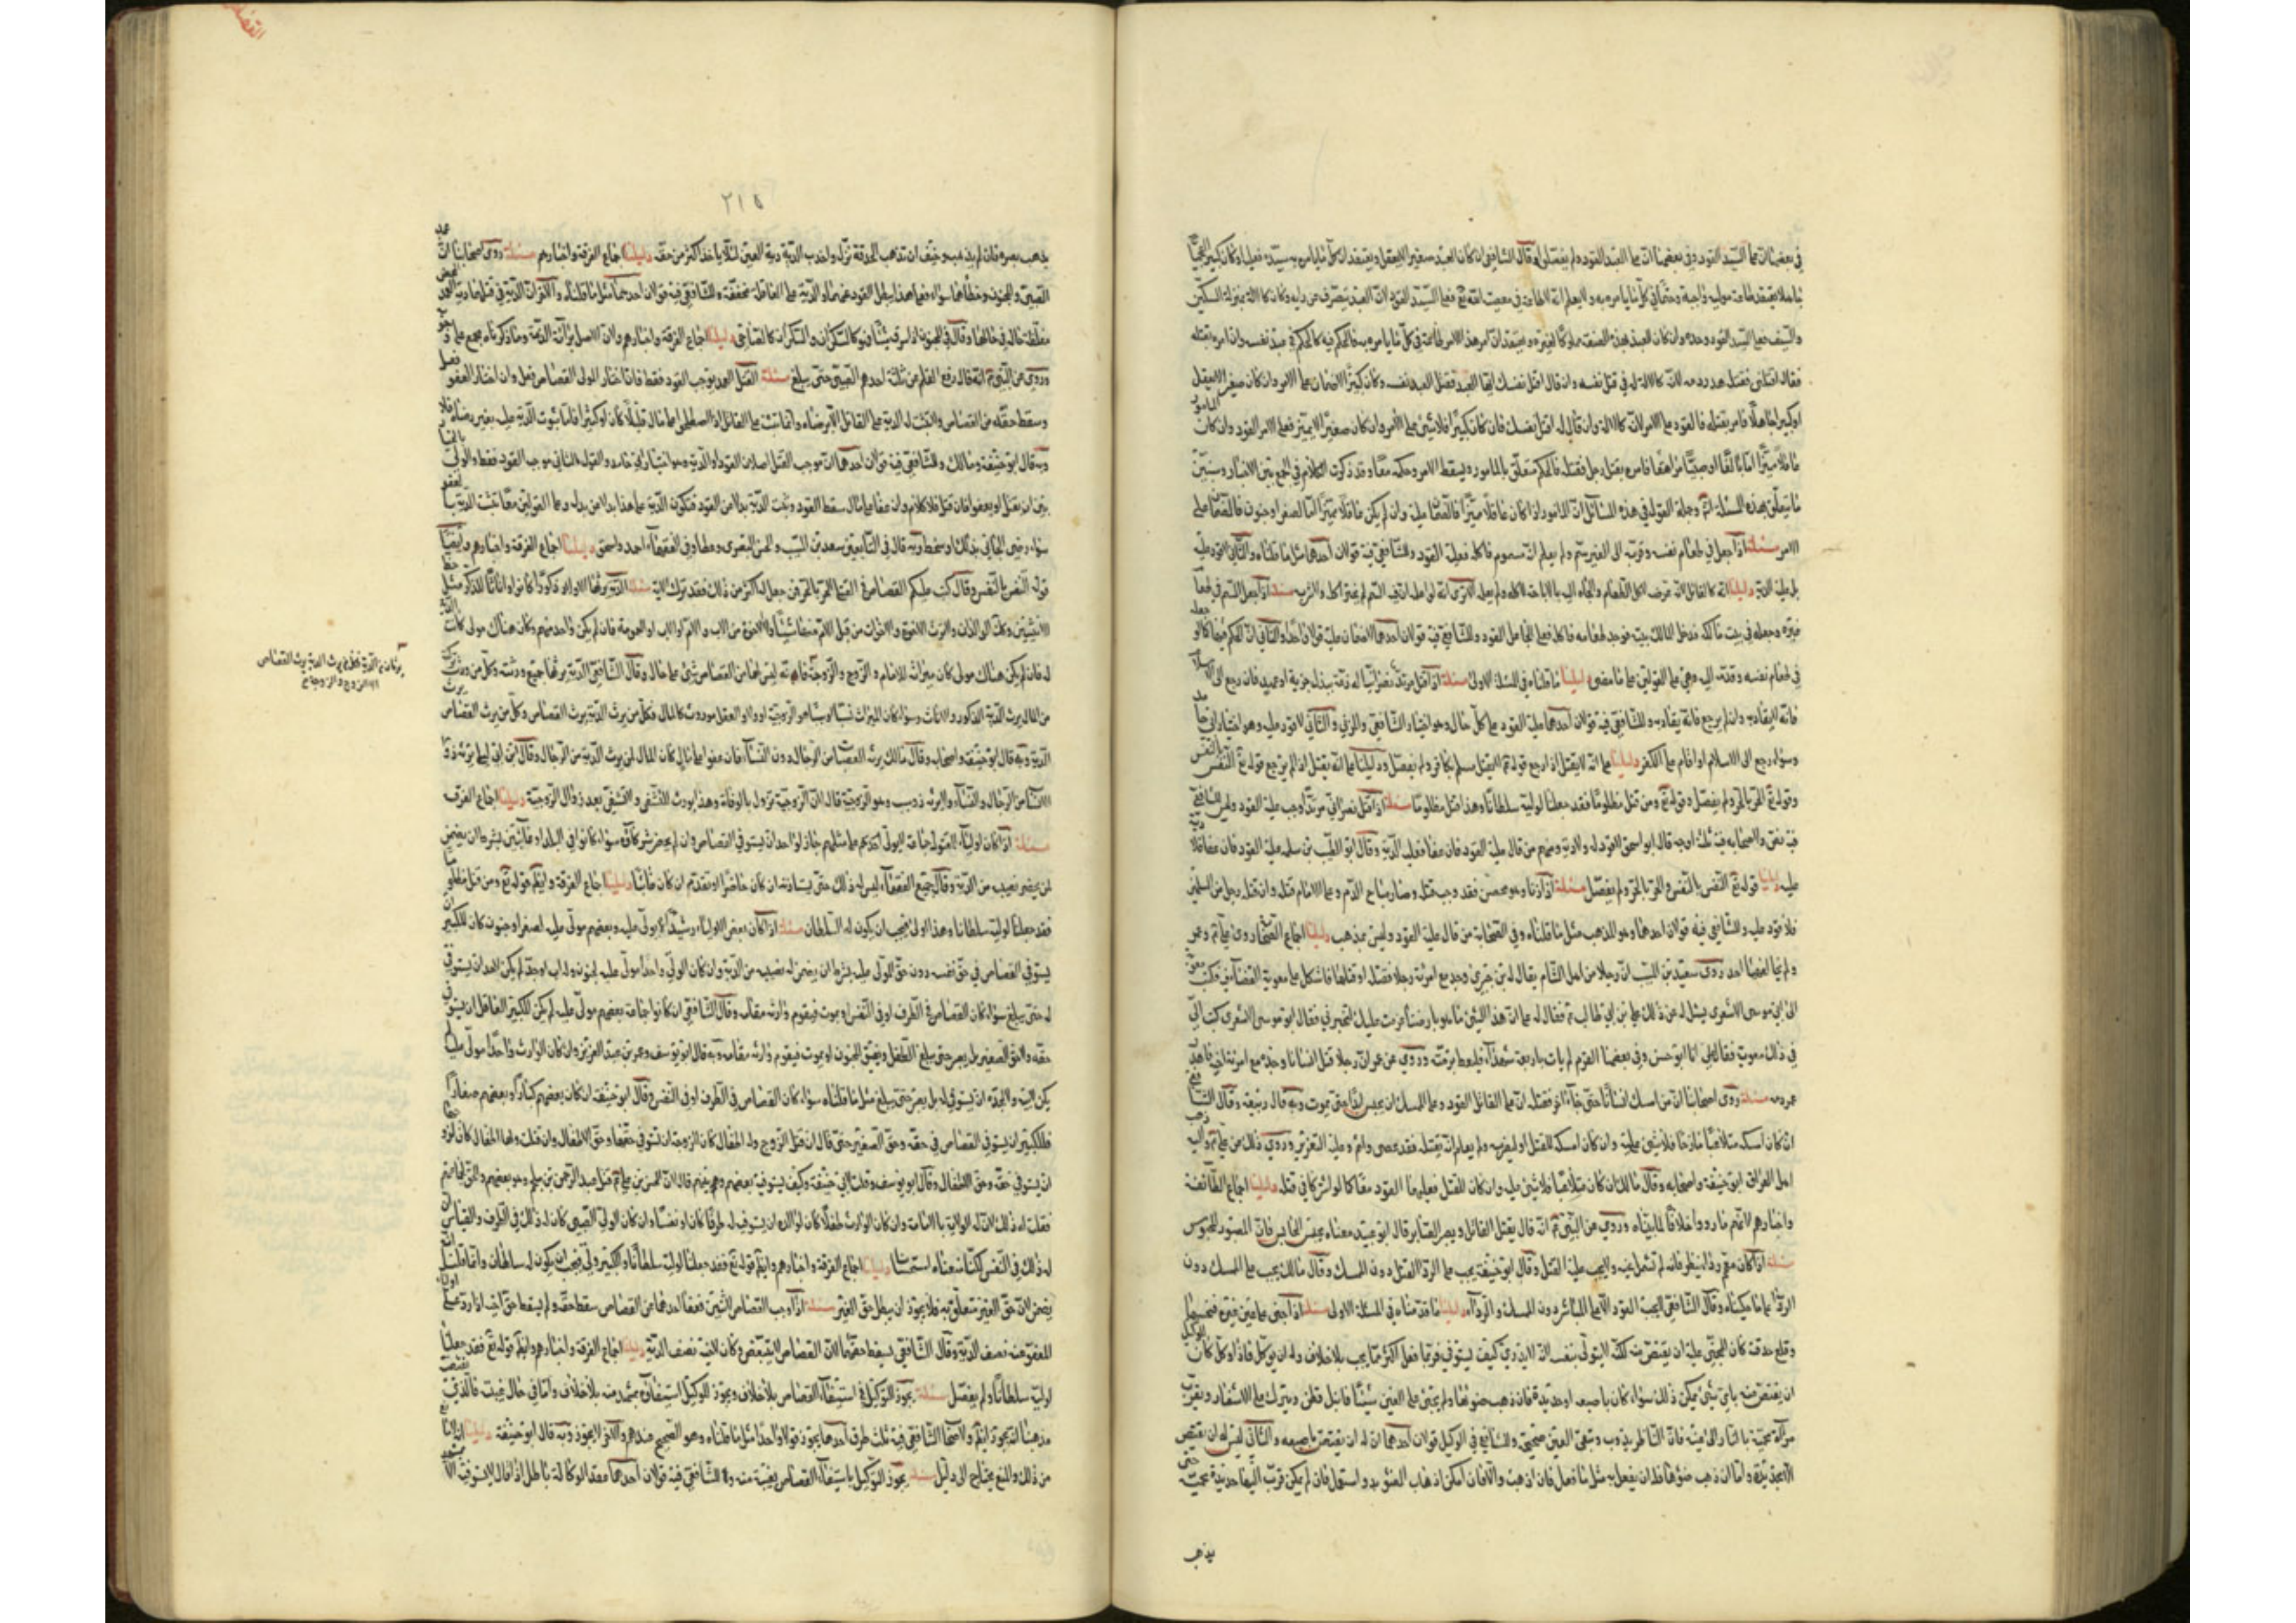 في بعضها ان على السيد القود وفي بعضها ان على العبد القود ولم يفصلوا وقال الشافعي ان كان العبد صغيرا لا يعقل ويعتقد ان كل ما يامره به سيده فعليه او كان كبيرا اعجميا
جاهلا يعتقد طاعة مولاه واجبة وحتما في كل ما يامره به ولا يعلم انه لا طاعة في معصية الله تع فعلى السيد القود لان العبد يتصرف عن رايه وكان كالالة بمنزلة السكين
والسيف فعلى السيد القود وحده وان كان العبد بهذه الصفة مملوكا لغيره ويعتقد ان امر هذا الامر طاعة في كل ما يامره به فالحكم فيه كالحكم في عبد نفسه وان امره بقتله
فقال اقتلني فقتله هدر دمه لانه كالالة له في قتل نفسه وان قال اقتل نفسك ايها العبد فقتل العبد نفسه وكان كبيرا لا ضمان على الامر وان كان صغيرا لا يعقل
او كبيرا جاهلا فامره بقتله فالقود على الامر لانه كالالة وان قال له اقتل نفسك فان كان كبيرا فلا شئ على الامر وان كان صغيرا لا يميز فعلى الامر القود وان كان المامور
عاقلا مميزا اما بالغا او صبيا مراهقا فامره بقتل رجل فقتله فالحكم متعلق بالمامور ويسقط الامر وحكمه معا وقد ذكرت الكلام في الجمع بين الاخبار وسنبين
ما يتعلق بهذه المسئلة ثم وجملة القول في هذه المسائل ان المامور اذا كان عاقلا مميزا فالضمان عليه وان لم يكن عاقلا مميزا اما لصغر او جنون فالضمان على
الامر مسئلة اذا جعل في طعام نفسه وقربه الى الغير ولم يعلم انه مسموم فاكله فعليه القود وللشافعي فيه قولان احدهما مثل ما قلناه والثاني لا قود عليه
بل عليه الدية دليلنا انه كالقاتل لانه عرضه لاكل الطعام
مسئلة اذا جعل السم في طعام
غيره وجعله في بيت مالكه فدخل المالك بيته فوجد طعامه فاكله فعلى الجاعل القود وللشافعي فيه قولان احدهما لا ضمان عليه والثاني ان الحكم فيه كما لو جعله
في طعام نفسه وقدمه اليه دليلنا ما قلناه في المسئلة الاولى مسئلة اذا قتل مرتد نصرانيا له ذمة ببذل جزية او عهد فان رجع الى الاسلام
فانه لا يقاد به وان لم يرجع فانه يقاد به وللشافعي فيه قولان احدهما عليه القود على كل حال وهو اختيار الشافعي والمزني والثاني لا قود عليه وهو اختيار ابي حامد
وسواء رجع الى الاسلام او اقام على الكفر دليلنا على انه لا يقتل اذا رجع قوله ع لا يقتل مسلم بكافر ولم يفصل ودليلنا على انه يقتل ان لم يرجع قوله تع النفس بالنفس
وقوله تع الحر بالحر ولم يفصل وقوله تع ومن قتل مظلوما فقد جعلنا لوليه سلطانا وهذا قتل مظلوما مسئلة اذا قتل نصراني مرتدا وجب عليه القود وليس للشافعي
فيه نص ولاصحابه فيه ثلثة اوجه قال ابو اسحق لا قود له ولا دية ومنهم من قال عليه القود فان عفا فعليه الدية وقال ابو الطيب بن سلمة عليه القود فان عفا فلا دية
عليه دليلنا قوله تع النفس بالنفس والحر بالحر ولم يفصل مسئلة اذا زنا وهو محصن فقد وجب قتله وصار مباح الدم وعلى الامام قتله وان قتله رجل من المسلمين
فلا قود عليه وللشافعي فيه قولان احدهما وهو المذهب مثل ما قلناه وفي الصحابة من قال عليه القود وليس بمذهب دليلنا اجماع الصحابة روي عن علي ع وعمر
ولم يخالفهما احد روى سعيد بن المسيب ان رجلا من اهل الشام يقال له ابن خيبري وجد مع امرئته رجلا فقتله او قتلها فاشكل على معوية القضاء فيه فكتب معوية
الى ابي موسى الاشعري يسئل له عن ذلك علي بن ابي طالب ع فقال له علي ان هذا الشئ ما هو بارضنا عزمت عليك لتخبرني فقال ابو موسى الاشعري كتب الي
في ذلك معوية فقال علي انا ابو حسن وفي بعضها القرم لم يات باربعة شهداء فليعط برمته وروي عن عمر ان رجلا قتل انسانا وجده مع امرئة اخيه فاهدر
عمر دمه مسئلة روى اصحابنا ان من امسك انسانا حتى جاء اخر فقتله ان على القاتل القود وعلى الممسك ان يحبس ابدا حتى يموت وبه قال ربيعة وقال الشافعي
ان كان امسكه متلاعبا مازحا فلا شئ عليه وان كان امسكه للقتل او ليضربه ولم يعلم انه يقتله فقد عصى واثم وعليه التعزير وروي ذلك عن علي ع واليه ذهب
اهل العراق ابو حنيفة واصحابه وقال مالك ان كان متلاعبا فلا شئ عليه وان كان للقتل فعليهما القود معا كما لو اشتركا في قتله دليلنا اجماع الطائفة
واخبارهم لانهم ما رووا خلافا لما بيناه وروي عن النبي ع انه قال يقتل القاتل ويصبر الصابر قال ابو عبيد معناه يحبس الحابس فان المصبور المحبوس
مسئلة اذا كان معهم ردء ينظر فانه تسمل عينه ولا يجب عليه القتل وقال ابو حنيفة يجب على الردء القتل دون الممسك وقال مالك يجب على الممسك دون
الردء على ما حكيناه وقال الشافعي لا يجب القود الا على المباشر دون الممسك والردء دليلنا ما قدمناه في المسئلة الاولى مسئلة اذا جنى على عين غيره فنخسها
وقلع حدقته كان للمجني عليه ان يقتص منه لكنه لا يتولى بنفسه لانه لا يدري كيف يستوفي فربما فعل اكثر مما يجب بلا خلاف وله ان يوكل فاذا وكل كان للوكيل
ان يقتص منه باي شئ يمكن ذلك سواء كان باصبعه او حديدة فان ذهب ضوئها ولم يجن على العين شيئا فانه يبل قطن ويترك على الاشفار ويقرب
مرآة محمية بالنار الى عينه فان الناظر يذوب وتبقى العين صحيحة وللشافعي في الوكيل قولان احدهما ان له ان يقتص باصبعه والثاني ليس له ان يقتص
الا بحديدة واما ان ذهب ضوئها فله ان يفعل به مثل ما فعل فان اذهبت والا فان امكن اذهاب الضوء بدواء استعمل فان لم يكن قرب اليها حديدة محمية حتى
يذهب
٢١٥
يذهب بصره فان لم يذهب وخيف ان تذهب الحدقة ترك واخذت الدية دية العين لئلا ياخذ اكثر من حقه دليلنا اجماع الفرقة واخبارهم مسئلة روى اصحابنا ان عمد
الصبي والمجنون وخطاهما سواء فعلى هذا يسقط القود عنهما والدية على العاقلة مخففة وللشافعي فيه قولان احدهما مثل ما قلناه والاخر ان الدية في قتلهما دية العمد المحض
مغلظة حالة في مالهما وقال في المجنون اذا سرق شيئا فهو كالسكران والسكران كالصاحي دليلنا اجماع الفرقة واخبارهم وان الاصل برائة الذمة وما ذكرناه مجمع على وجوبه
وروي عن النبي ع انه قال رفع القلم عن ثلثة احدهم الصبي حتى يبلغ مسئلة القتل العمد يوجب القود فقط فان اختار الولي القصاص فعل وان اختار العفو فعل
وسقط حقه من القصاص ولا يثبت له الدية على القاتل الا برضاه وانما يثبت على القاتل اذا اصطلحوا على مال قليلا كان او كثيرا فاما ثبوت الدية عليه بغير رضاه فلا
وبه قال ابو حنيفة ومالك وللشافعي فيه قولان احدهما ان موجب القتل اصلان القود او الدية وهو اختيار ابي حامد والقول الثاني موجبه القود فقط والولي بالخيار
بين ان يقتل او يعفو فان قتل فلا كلام وان عفا على مال سقط القود وثبتت الدية بدلا عن القود فتكون الدية على هذا بدلا عن بدل وعلى القولين معا تثبت الدية بالعفو
سواء رضي الجاني بذلك او سخط وبه قال في التابعين سعيد بن المسيب والحسن البصري وعطا وفي الفقهاء احمد واسحق دليلنا اجماع الفرقة واخبارهم وايضا
قوله النفس بالنفس وقال كتب عليكم القصاص في القتلى الحر بالحر فمن جعل له اكثر من ذلك فقد ترك الاية مسئلة الدية يرثها الاولاد ذكورا كانوا او اناثا للذكر مثل حظ
الانثيين وكذلك الوالدان ولا يرث الاخوة والاخوات من قبل الام منها شيئا ولا الاخوة من الاب والام او الاب او العمومة فان لم يكن واحد منهم وكان هناك مولى كانت الدية
له فان لم يكن هناك مولى كان ميراثه للامام والزوج والزوجة فانه ليس لهما من القصاص شئ على حال وقال الشافعي الدية يرثها جميع ورثته وكل من ورث تركته
من المال يرث الدية الذكور والاناث وسواء كان الميراث نسبا او سببا هو الزوجية او ولاء والعقل موروث كالمال فكل من يرث الدية يرث القصاص وكل من يرث القصاص يرث
الدية وبه قال ابو حنيفة واصحابه وقال مالك يرثه العصبات من الرجال دون النساء فان عفوا على مال كان المال لمن يرث الدية من الرجال وقال ابن ابي ليلى يرثه ذووا
الانساب من الرجال والنساء ولا يرثه ذو سبب وهو الزوجية قال لان الزوجية تزول بالوفاة وهذا يورث للتشفي ولا تشفي بعد زوال الزوجية دليلنا اجماع الفرقة
مسئلة اذا كان اولياء المقتول جماعة لا يولى احدهم على مثلهم جاز لواحد ان يستوفي القصاص وان لم يحضر شركاؤه سواء كانوا في البلد او غائبين بشرط ان يضمن
لمن لم يحضر نصيبه من الدية وقال جميع الفقهاء ليس له ذلك حتى يستاذنه ان كان حاضرا او تقدم ان كان غائبا دليلنا اجماع الفرقة وايضا قوله تع ومن قتل مظلوما
فقد جعلنا لوليه سلطانا وهذا الولي فيجب ان يكون له السلطان مسئلة اذا كان بعض الاولياء رشيدا لا يولى عليه وبعضهم مولى عليه لصغر او جنون كان للكبير ان
يستوفي القصاص في حق نفسه دون حق المولى عليه بشرط ان يضمن له نصيبه من الدية وان كان الولي واحدا مولى عليه لجنون وله اب او جد لم يكن لاحد ان يستوفي
له حتى يبلغ سواء كان القصاص في الطرف او في النفس او يموت فيقوم وارثه مقامه وقال الشافعي ان كانوا جماعة بعضهم مولى عليه لم يكن للكبير العاقل ان يستوفي
حقه ولا حق الصغير بل يصبر حتى يبلغ الطفل ويفيق المجنون او يموت فيقوم وارثه مقامه وبه قال ابو يوسف وعمر بن عبد العزيز وان كان الوارث واحدا مولى عليه لم
يكن لابيه والجد ان يستوفي له بل يصبر حتى يبلغ مثل ما قلناه سواء كان القصاص في الطرف او في النفس وقال ابو حنيفة ان كان بعضهم كبارا وبعضهم صغارا
فللكبير ان يستوفي القصاص في حقه وحق الصغير حتى قال ان قتل الزوج وله اطفال كان للزوجة ان تستوفي حقها وحق الاطفال وان قتلت ولها اطفال كان للزوج
ان يستوفي حقه وحق الاطفال وقال ابو يوسف وقلت لابي حنيفة وكيف يستوفيه بعضهم وهو بينهم قال لان الحسن بن علي ع قتل عبد الرحمن بن ملجم وهو بعضهم والحق لجماعتهم
فقلت له ذلك لان له الولاية بالامامة وان كان الوارث طفلا كان لوالده ان يستوفيه له طرفا كان او نفسا وان كان الولي الوصي كان له ذلك في الطرف والقياس ان
له ذلك في النفس لكنا منعناه استحسانا دليلنا اجماع الفرقة واخبارهم وايضا قوله تع فقد جعلنا لوليه سلطانا والكبير ولي فيجب ان يكون له سلطان وانما قلنا
يضمن لان حق الغير متعلق به فلا يجوز ان يبطل حق الغير مسئلة اذا وجب القصاص لاثنين فعفا احدهما عن القصاص سقط حقه ولم يسقط حق اخيه اذا رد على اولياء
المعفو عنه نصف الدية وقال الشافعي يسقط حقهما لان القصاص لا يتبعض وكان لاخيه نصف الدية دليلنا اجماع الفرقة واخبارهم وايضا قوله تع فقد جعلنا
لوليه سلطانا ولم يفصل مسئلة يجوز التوكيل في استيفاء القصاص بلا خلاف ويجوز للوكيل استيفاؤه بمشهد منه بلا خلاف واما في حال غيبته فالذي يقتضيه
مذهبنا انه يجوز ايضا ولاصحاب الشافعي فيه ثلث طرق احدها يجوز قولا واحدا مثل ما قلناه وهو الصحيح عندهم والاخر لا يجوز وبه قال ابو حنيفة دليلنا انه لا مانع
من ذلك والمنع يحتاج الى دليل مسئلة يجوز التوكيل باستيفاء القصاص بغيبة منه وللشافعي فيه قولان احدهما عقد الوكالة باطل اذا قال لا يستوفيه الا بمشهد
الدية يرث القصاص
الا الزوج والزوجة اجماع